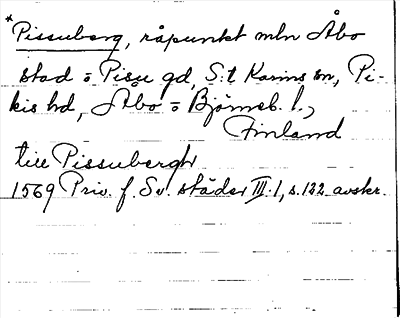 *Pissuberg, råpunkt mln Åbo
stad o Pisu gd, S:t Karins sn, Pi-
kis hd, Åbo o Björneb. l.,
Finland
till Pissubergh
1569 Priv. f. Sv. städer III:1, s. 122 avskr.